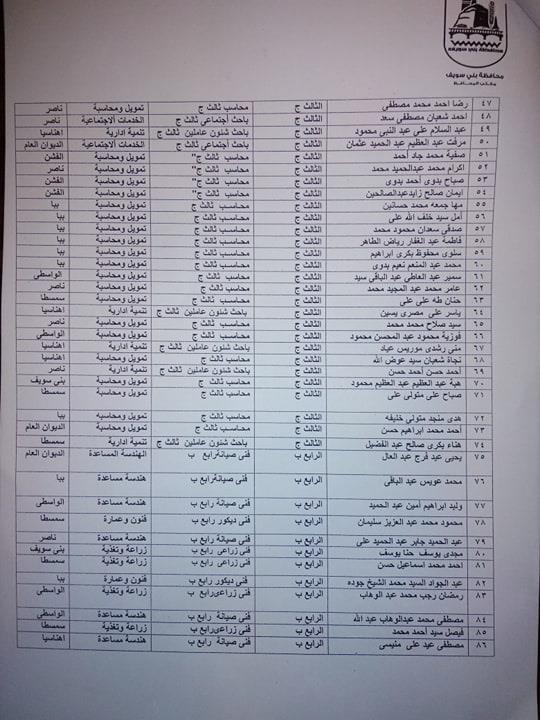 محافظة بني سويف
مكتب المحافظ
٤٧ رضا احمد محمد مصطفى الثالث ج محاسب ثالث ج تمويل ومحاسبة ناصر
٤٨ احمد شعبان مصطفى سعد الثالث ج باحث أجتماعى ثالث ج الخدمات الاجتماعية ناصر
٤٩ عبد السلام على عبد النبى محمود الثالث ج باحث شئون عاملين ثالث ج تنمية ادارية اهناسيا
٥٠ مرفت عبد العظيم عبد الحميد عثمان الثالث ج باحث أجتماعى ثالث ج الخدمات الاجتماعية الديوان العام
٥١ صفية محمد جاد أحمد الثالث ج محاسب ثالث ج" تمويل ومحاسبة الفشن
٥٢ اكرام محمد عبدالحميد محمد الثالث ج محاسب ثالث ج" تمويل ومحاسبة ناصر
٥٣ صباح بدوى أحمد بدوى الثالث ج محاسب ثالث ج" تمويل ومحاسبة الفشن
٥٤ ايمان صالح زايدعبدالصالحين الثالث ج محاسب ثالث ج" تمويل ومحاسبة الفشن
٥٥ مها جمعه محمد حسانين الثالث ج محاسب ثالث ج تمويل ومحاسبة ببا
٥٦ أمل سيد خلف الله على الثالث ج محاسب ثالث ج تمويل ومحاسبة ببا
٥٧ صدقى سعدان محمود محمد الثالث ج محاسب ثالث ج تمويل ومحاسبة ببا
٥٨ فاطمة عبد الغفار رياض الطاهر الثالث ج محاسب ثالث ج تمويل ومحاسبة ببا
٥٩ سلوى محفوظ بكرى ابراهيم الثالث ج محاسب ثالث ج تمويل ومحاسبة ببا
٦٠ محمد عبد المنعم نعيم بدوى الثالث ج محاسب ثالث ج تمويل ومحاسبة ببا
٦١ سمير عبد العاطى عبد الباقى سيد الثالث ج محاسب ثالث ج تمويل ومحاسبة الواسطى
٦٢ عامر محمد عبد المجيد محمد الثالث ج محاسب ثالث ج تمويل ومحاسبة ناصر
٦٣ حنان طه على على الثالث ج محاسب ثالث ج تمويل ومحاسبة سمسطا
٦٤ ياسر على مصرى يسين الثالث ج باحث شئون عاملين ثالث ج تنمية ادارية اهناسيا
٦٥ سيد صلاح محمد محمد الثالث ج محاسب ثالث ج تمويل ومحاسبة ناصر
٦٦ فوزية محمود عبد المحسن محمود الثالث ج محاسب ثالث ج تمويل ومحاسبة الواسطى
٦٧ منى رشدى موريس عياد الثالث ج باحث شئون عاملين ثالث ج تنمية ادارية اهناسيا
٦٨ نجاة شعبان سيد عوض الله الثالث ج محاسب ثالث ج تمويل ومحاسبة اهناسيا
٦٩ أحمد حسن أحمد حسن الثالث ج باحث شئون عاملين ثالث ج تنمية ادارية ناصر
٧٠ هبة عبد العظيم عبد العظيم محمود الثالث ج محاسب ثالث ج تمويل ومحاسبة بنى سويف
٧١ صباح على متولى على الثالث ج محاسب ثالث ج تمويل ومحاسبة سمسطا
٧٢ هدى منجد متولى خليفه الثالث ج محاسب ثالث ج تمويل ومحاسبة ببا
٧٣ أحمد محمد ابراهيم حسن الثالث ج محاسب ثالث ج تمويل ومحاسبة الديوان العام
٧٤ هناء بكرى صالح عبد الفضيل الثالث ج باحث شئون عاملين ثالث ج تنمية ادارية سمسطا
٧٥ يحيى عبد فرج عبد العال الرابع ب فنى صيانةرابع ب الهندسة المساعدة الديوان العام
٧٦ محمد عويس عبد الباقى الرابع ب فنى صيانةرابع ب هندسة مساعدة ببا
٧٧ وليد ابراهيم أمين عبد الحميد الرابع ب فنى صيانة رابع ب هندسة مساعدة الواسطى
٧٨ محمود محمد عبد العزيز سليمان الرابع ب فنى ديكور رابع ب فنون وعمارة سمسطا
٧٩ عبد الحميد جابر عبد الحميد على الرابع ب فنى صيانة رابع ب هندسة مساعدة ناصر
٨٠ مجدى يوسف حنا يوسف الرابع ب فنى زراعى رابع ب زراعة وتغذية بنى سويف
٨١ احمد محمد اسماعيل حسن الرابع ب فنى صيانة رابع ب هندسة مساعدة سمسطا
٨٢ عبد الجواد السيد محمد الشيخ جوده الرابع ب فنى ديكور رابع ب فنون وعمارة ببا
٨٣ رمضان رجب محمد عبد الوهاب الرابع ب فنى زراعىرابع ب زراعة وتغذية الواسطى
٨٤ مصطفى محمد عبدالوهاب عبد الله الرابع ب فنى صيانة رابع ب هندسة مساعدة الواسطى
٨٥ فيصل سيد أحمد محمد الرابع ب فنى زراعىرابع ب زراعة وتغذية سمسطا
٨٦ مصطفى عيد على منيسى الرابع ب فنى صيانة رابع ب هندسة مساعدة اهناسيا